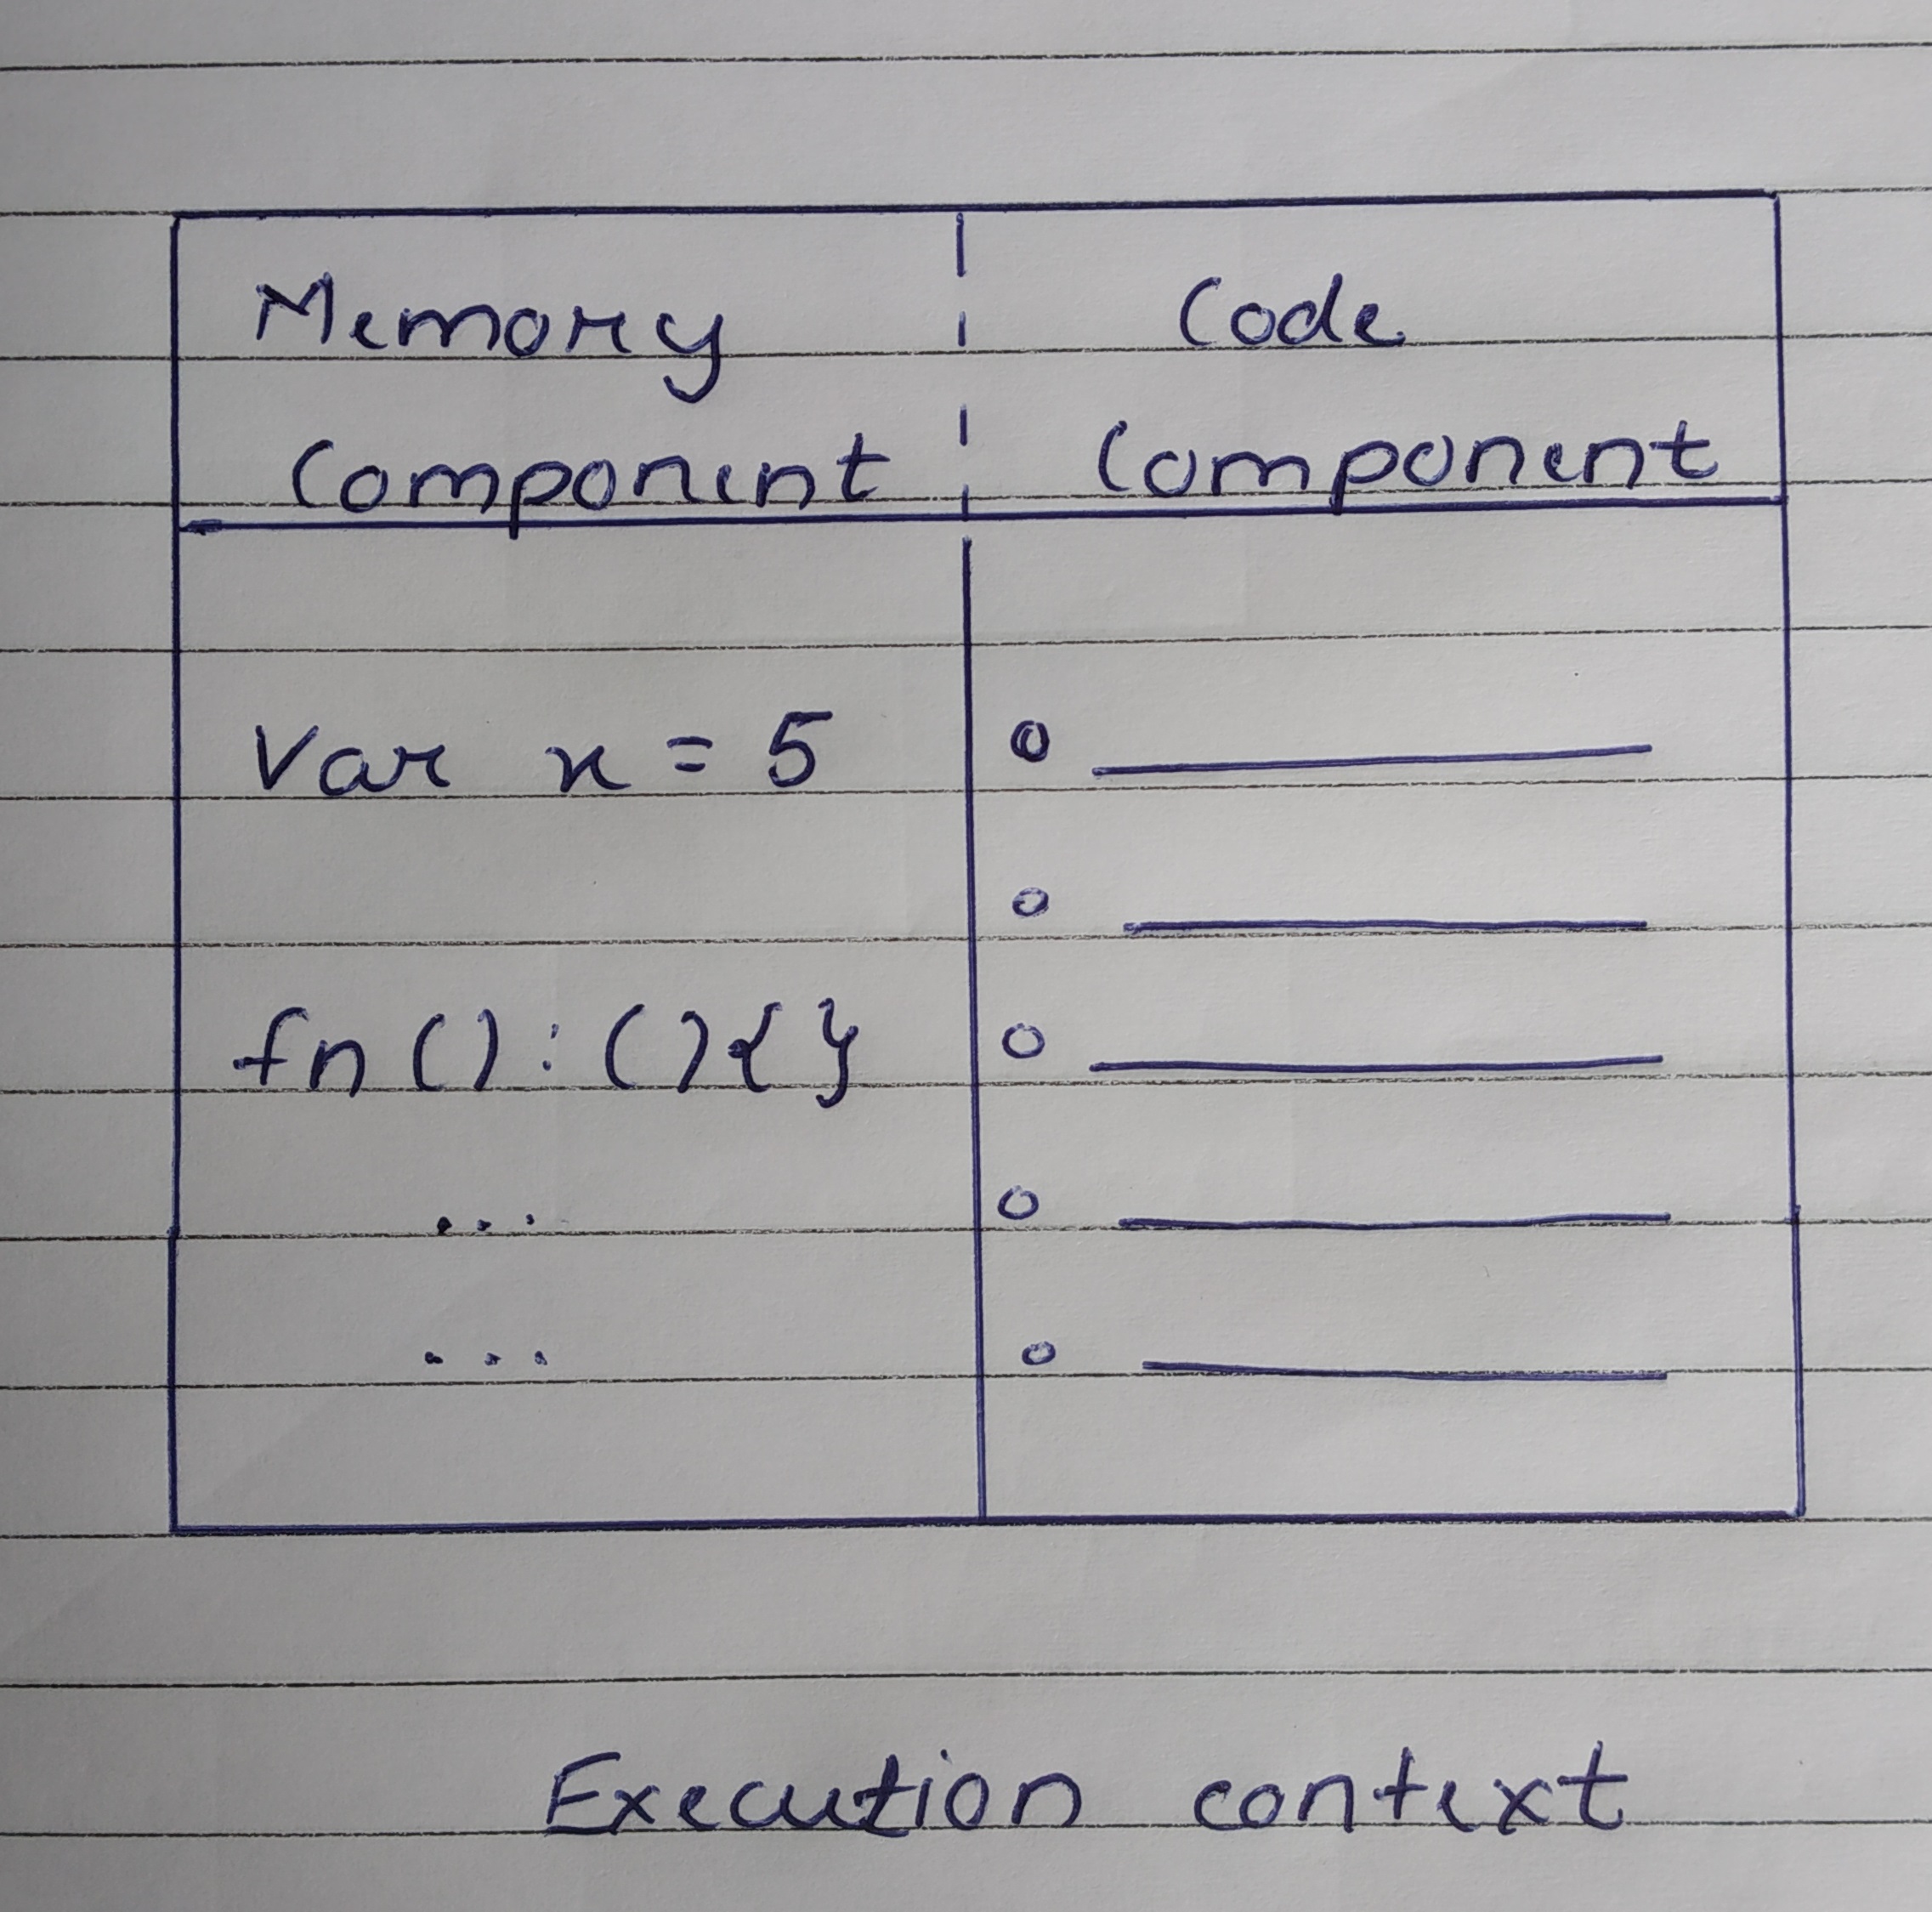 Memory
Component
Code
Component
Var x = 5
fn () : () { }
...
...
Execution context